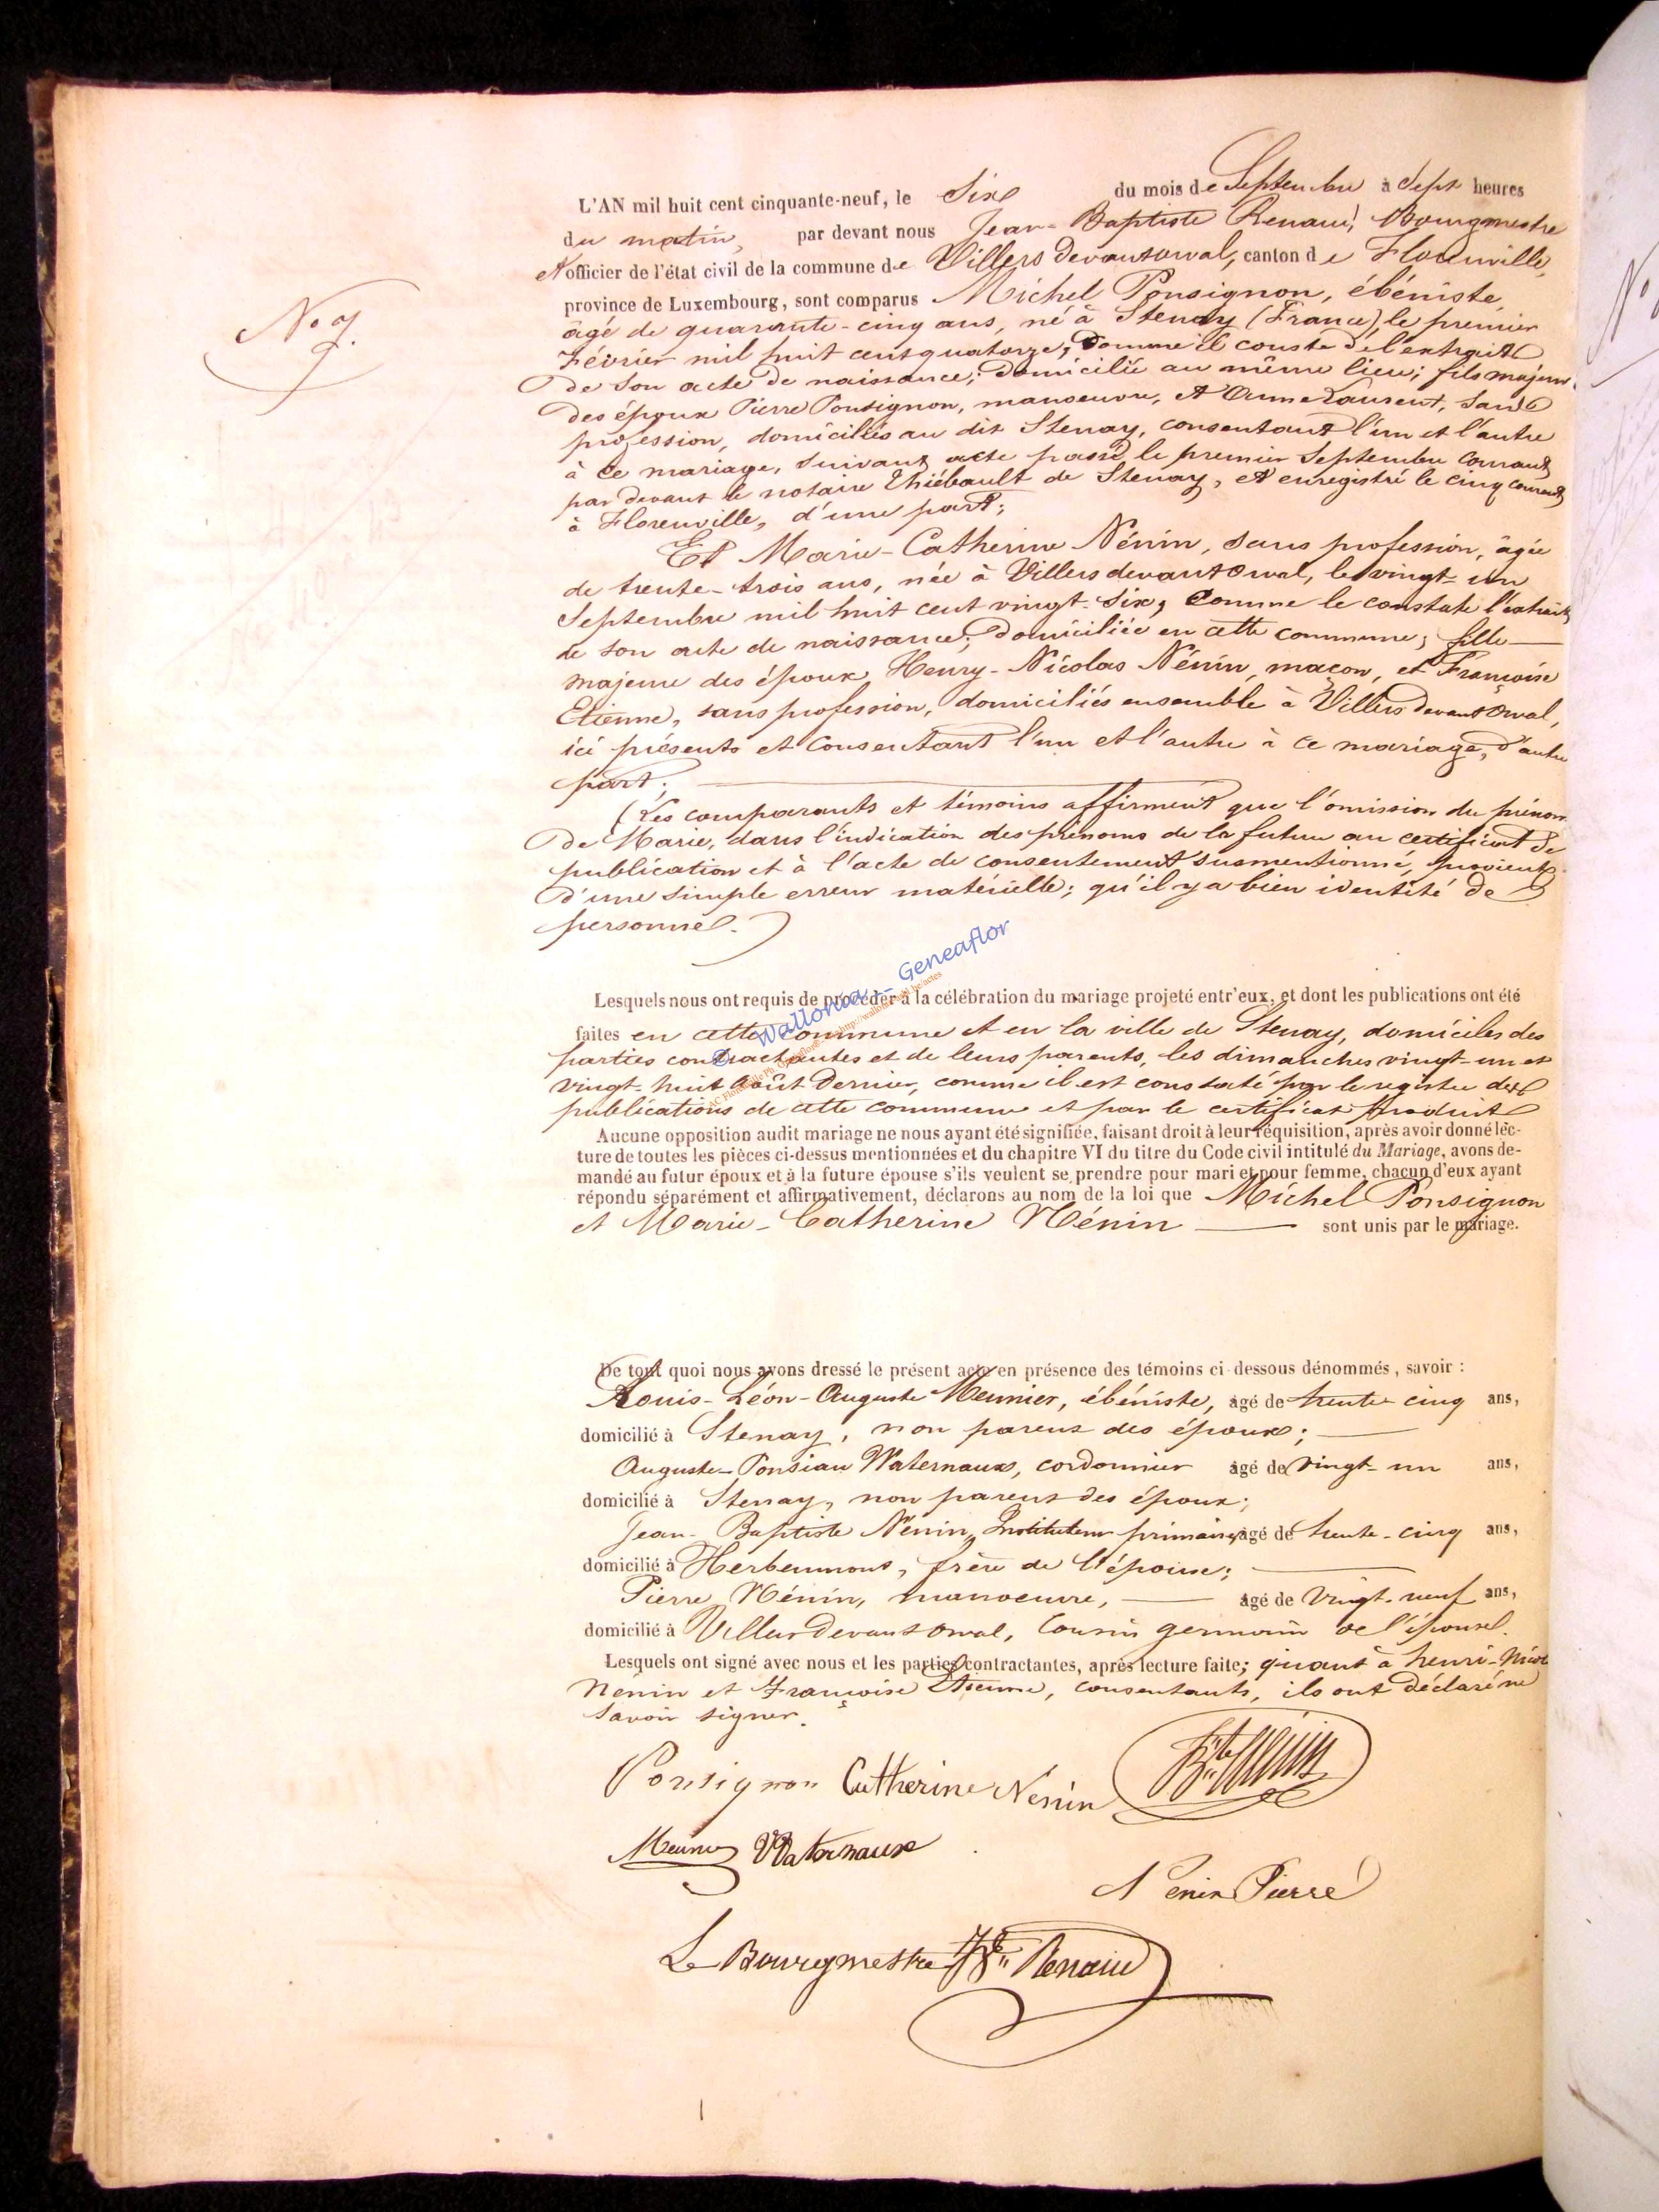 L'AN mil huit cent cinquante-neuf, le Six du mois de Septembre à Sept heures
du matin, par devant nous Jean-Baptiste Renaud, Bourgmestre
et officier de l'état civil de la commune de Villers devant Orval, canton de Florenville,
province de Luxembourg, sont comparus Michel Ponsignon, ébéniste,
âgé de quarante-cinq ans, né à Stenay (France), le premier
Février mil huit cent quatorze, comme il conste de l'extrait
de son acte de naissance; domicilié au même lieu; fils majeur
des époux Pierre Ponsignon, manoeuvre, et Anne Laurent, sans
profession, domiciliés au dit Stenay, consentant l'un et l'autre
à ce mariage, suivant acte passé le premier Septembre courant
par devant le notaire Thiébault de Stenay, et enregistré le cinq courant
à Florenville, d'une part;
Et Marie-Catherine Nénin, sans profession, âgée
de trente-trois ans, née à Villers devant Orval, le vingt-un
Septembre mil huit cent vingt-six, comme le constate l'extrait
de son acte de naissance; domiciliée en cette commune; fille
majeure des époux Henry-Nicolas Nénin, maçon, et Françoise
Etienne, sans profession, domiciliés ensemble à Villers devant Orval,
ici présents et consentant l'un et l'autre à ce mariage, d'autre
part;
(Les comparants et témoins affirment que l'omission du prénom
de Marie, dans l'indication des prénoms de la future au certificat de
publication et à l'acte de consentement susmentionné, provient
d'une simple erreur matérielle; qu'il y a bien identité de
personne.)
© Wallonia - Geneaflor
Lesquels nous ont requis de procéder à la célébration du mariage projeté entr'eux, et dont les publications ont été
faites en cette commune et en la ville de Stenay, domiciles des
parties contractantes et de leurs parents, les dimanches vingt-un et
vingt-huit Août dernier, comme il est constaté par le registre des
publications de cette commune et par le certificat produit
Aucune opposition audit mariage ne nous ayant été signifiée, faisant droit à leur réquisition, après avoir donné lec-
ture de toutes les pièces ci-dessus mentionnées et du chapitre VI du titre du Code civil intitulé du Mariage, avons de-
mandé au futur époux et à la future épouse s'ils veulent se prendre pour mari et pour femme, chacun d'eux ayant
répondu séparément et affirmativement, déclarons au nom de la loi que Michel Ponsignon
et Marie-Catherine Nénin sont unis par le mariage.
De tout quoi nous avons dressé le présent acte en présence des témoins ci-dessous dénommés, savoir :
Louis-Léon-Auguste Meunier, ébéniste, âgé de trente cinq ans,
domicilié à Stenay, non parent des époux;
Auguste-Ponsian Waternaux, cordonnier âgé de vingt-un ans,
domicilié à Stenay, non parent des époux;
Jean-Baptiste Nénin, Instituteur primaire, âgé de trente-cinq ans,
domicilié à Herbeumont, frère de l'épouse;
Pierre Nénin, manoeuvre, âgé de vingt-neuf ans,
domicilié à Villers devant Orval, Cousin germain de l'épouse.
Lesquels ont signé avec nous et les parties contractantes, après lecture faite; quant à henri-Nicol
Nénin et Françoise Etienne, consentants, ils ont déclaré ne
savoir signer.
Ponsignon Catherine Nénin Bte Nénin
Meunier Waternaux
Nenin Pierre
Le Bourgmestre JBte Renaud
No 7.